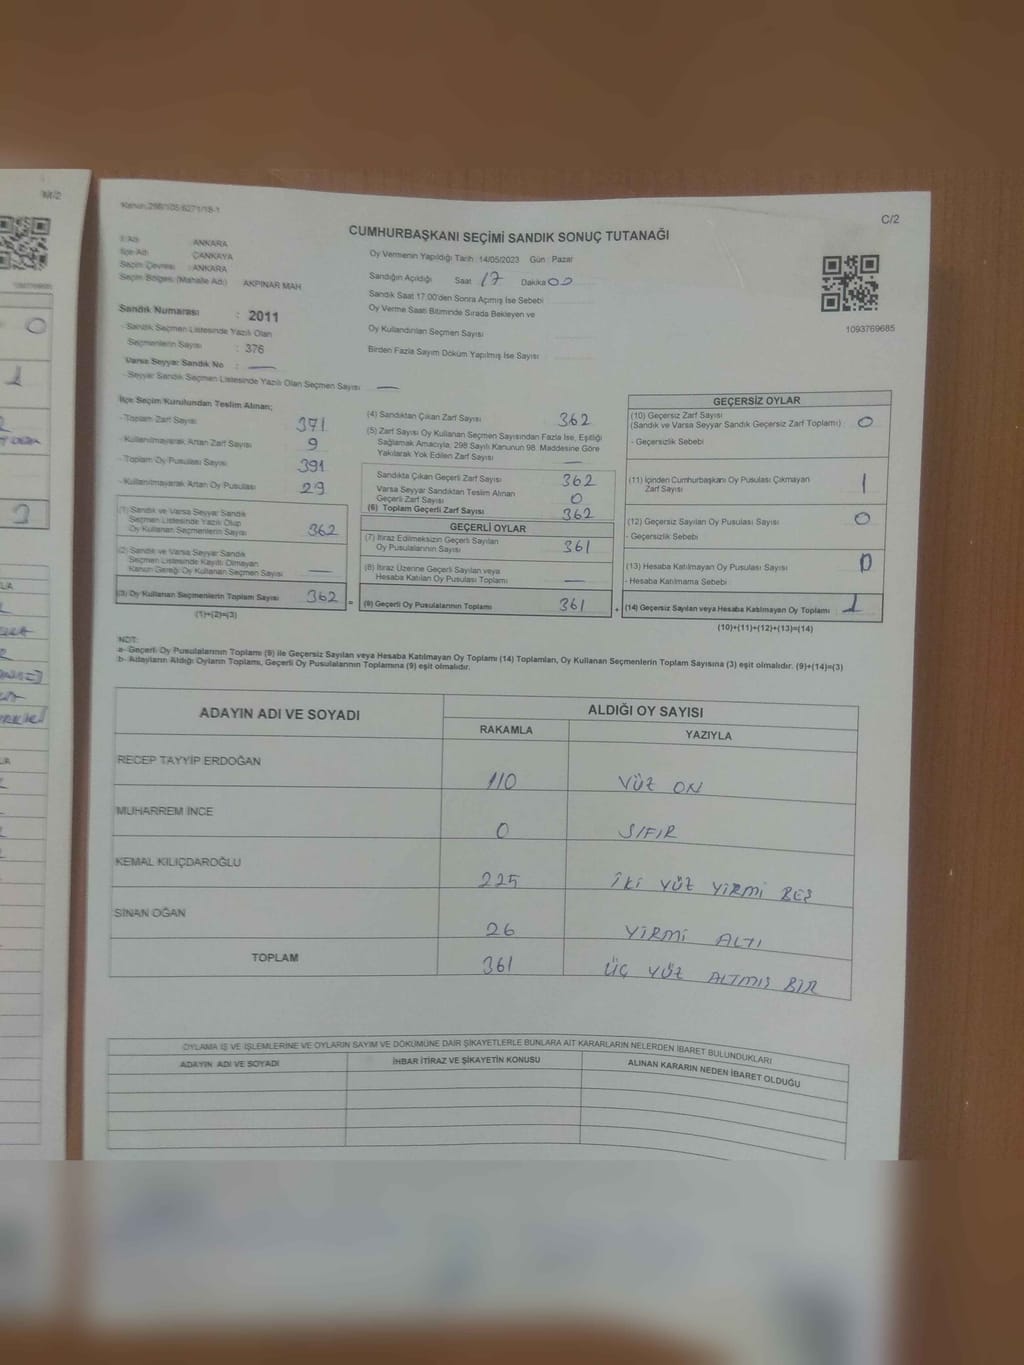 Kanun:298/105;6271/18-1
C/2
CUMHURBAŞKANI SEÇİMİ SANDIK SONUÇ TUTANAĞI
İl Adı : ANKARA
İlçe Adı : ÇANKAYA
Seçim Çevresi : ANKARA
Seçim Bölgesi (Mahalle Adı) AKPINAR MAH
Sandık Numarası : 2011
- Sandık Seçmen Listesinde Yazılı Olan
Seçmenlerin Sayısı : 376
Varsa Seyyar Sandık No : —
- Seyyar Sandık Seçmen Listesinde Yazılı Olan Seçmen Sayısı —
Oy Vermenin Yapıldığı Tarih 14/05/2023 Gün : Pazar
Sandığın Açıldığı Saat 17 Dakika 00
Sandık Saat 17.00'den Sonra Açmış İse Sebebi
Oy Verme Saati Bitiminde Sırada Bekleyen ve
Oy Kullandırılan Seçmen Sayısı
Birden Fazla Sayım Döküm Yapılmış İse Sayısı
1093769685
İlçe Seçim Kurulundan Teslim Alınan;
- Toplam Zarf Sayısı 371
- Kullanılmayarak Artan Zarf Sayısı 9
- Toplam Oy Pusulası Sayısı 391
- Kullanılmayarak Artan Oy Pusulası 29
(1) Sandık ve Varsa Seyyar Sandık
Seçmen Listesinde Yazılı Olup
Oy Kullanan Seçmenlerin Sayısı 362
(2) Sandık ve Varsa Seyyar Sandık
Seçmen Listesinde Kayıtlı Olmayan
Kanun Gereği Oy Kullanan Seçmen Sayısı —
(3) Oy Kullanan Seçmenlerin Toplam Sayısı 362 =
(1)+(2)=(3)
(4) Sandıktan Çıkan Zarf Sayısı 362
(5) Zarf Sayısı Oy Kullanan Seçmen Sayısından Fazla İse, Eşitliği
Sağlamak Amacıyla, 298 Sayılı Kanunun 98. Maddesine Göre
Yakılarak Yok Edilen Zarf Sayısı —
Sandıkta Çıkan Geçerli Zarf Sayısı 362
Varsa Seyyar Sandıktan Teslim Alınan
Geçerli Zarf Sayısı 0
(6) Toplam Geçerli Zarf Sayısı 362
GEÇERLİ OYLAR
(7) İtiraz Edilmeksizin Geçerli Sayılan
Oy Pusulalarının Sayısı 361
(8) İtiraz Üzerine Geçerli Sayılan veya
Hesaba Katılan Oy Pusulası Toplamı —
(9) Geçerli Oy Pusulalarının Toplamı 361 +
GEÇERSİZ OYLAR
(10) Geçersiz Zarf Sayısı
(Sandık ve Varsa Seyyar Sandık Geçersiz Zarf Toplamı) 0
- Geçersizlik Sebebi
(11) İçinden Cumhurbaşkanı Oy Pusulası Çıkmayan
Zarf Sayısı 1
(12) Geçersiz Sayılan Oy Pusulası Sayısı 0
- Geçersizlik Sebebi
(13) Hesaba Katılmayan Oy Pusulası Sayısı 0
- Hesaba Katılmama Sebebi
(14) Geçersiz Sayılan veya Hesaba Katılmayan Oy Toplamı 1
(10)+(11)+(12)+(13)=(14)
NOT:
a- Geçerli Oy Pusulalarının Toplamı (9) ile Geçersiz Sayılan veya Hesaba Katılmayan Oy Toplamı (14) Toplamları, Oy Kullanan Seçmenlerin Toplam Sayısına (3) eşit olmalıdır. (9)+(14)=(3)
b- Adayların Aldığı Oyların Toplamı, Geçerli Oy Pusulalarının Toplamına (9) eşit olmalıdır.
ADAYIN ADI VE SOYADI ALDIĞI OY SAYISI
RAKAMLA YAZIYLA
RECEP TAYYİP ERDOĞAN 110 YÜZ ON
MUHARREM İNCE 0 SIFIR
KEMAL KILIÇDAROĞLU 225 İKİ YÜZ YİRMİ BEŞ
SİNAN OĞAN 26 YİRMİ ALTI
TOPLAM 361 ÜÇ YÜZ ALTMIŞ BİR
OYLAMA İŞ VE İŞLEMLERİNE VE OYLARIN SAYIM VE DÖKÜMÜNE DAİR ŞİKAYETLERLE BUNLARA AİT KARARLARIN NELERDEN İBARET BULUNDUKLARI
ADAYIN ADI VE SOYADI İHBAR İTİRAZ VE ŞİKAYETİN KONUSU ALINAN KARARIN NEDEN İBARET OLDUĞU